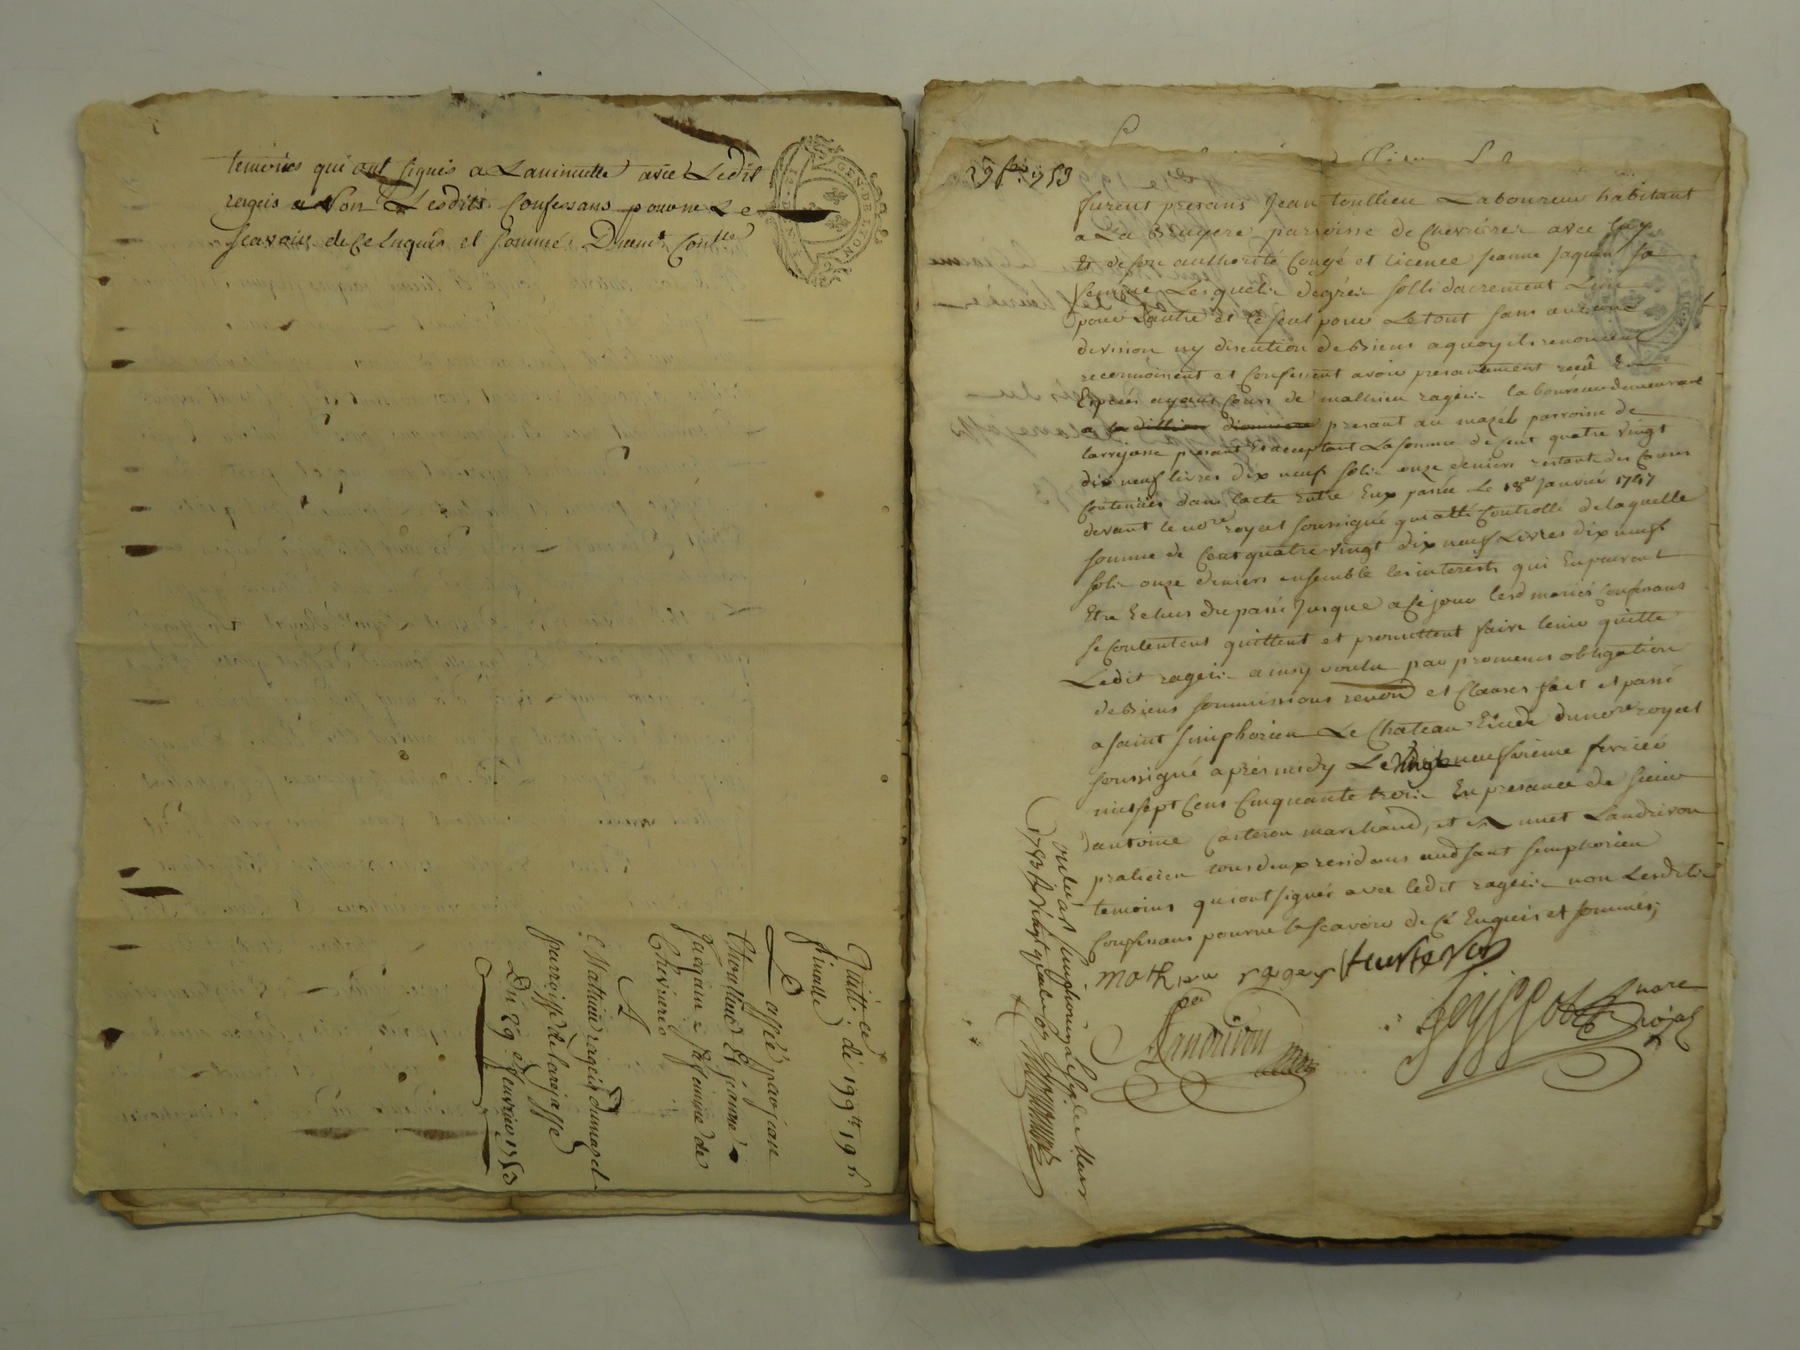 temoins qui ont signés a La minutte avec Ledit
rageis a Non Lesdits Confessans pour ne Le
scavoir de ce Enquis et sommés Duem.t Contlé
GEN. DE LYON
Quittce de 199lt 19s
finalle
passé par jean
thoullieu Et jeanne
jacquin sa femme de
Chevrieres
A
Mathieu rageis du mazel
parroisse de larajasse
Du 29e fevrier 1753
29 fer 1753
furent presans Jean toullieu Laboureur habitant
a La Bruyere parroisse de Chevrieres avec luy
Et de son authorité Congé et licence Jeanne Jaquin sa
femme Lesquels degrés sollidairement L'un
pour L'autre et le seul pour Le tout sans aucune
division ny discution de Biens a quoy ils renoncent
reconnoissent et Confessent avoir presantement receû En
Especes ayant Cours de mathieu rageis laboureur demeurant
a presant au mazel parroisse de
larrajasse presant Et acceptant La somme de Cent quatre vingt
dix neuf livres dix neuf sols onze deniers restante des Causes
Contenües dans lacte Entre Eux passée Le 18e Janvier 1747
devant le nore royal soussigné qui a été Controllé de laquelle
somme de Cent quatre vingt dix neuf Livres dix neuf
sols onze deniers ensemble les interests qui En peuvent
Etre Echus du passé Jusque a ce jour lesd mariés Confessans
se Contentent quittent et promettent faire tenir quitte
Ledit rageis ainsy voulu par promesses obligation
de Biens soumissions renond et Clauses fait et passé
a saint simphorien Le Chateau Etude du nore royal
soussigné aprés midy Le vingt neufvieme fevrier
mil sept Cens Cinquante trois En presance de sieur
antoine Casteron marchand, et Landrivon
praticien tous deux residans aud saint simphorien
temoins qui ont signés avec ledit rageis non Lesdits
Confessans pour ne le scavoir de ce Enquis et sommés;
mathieu rages
Landrivon
nore
royal